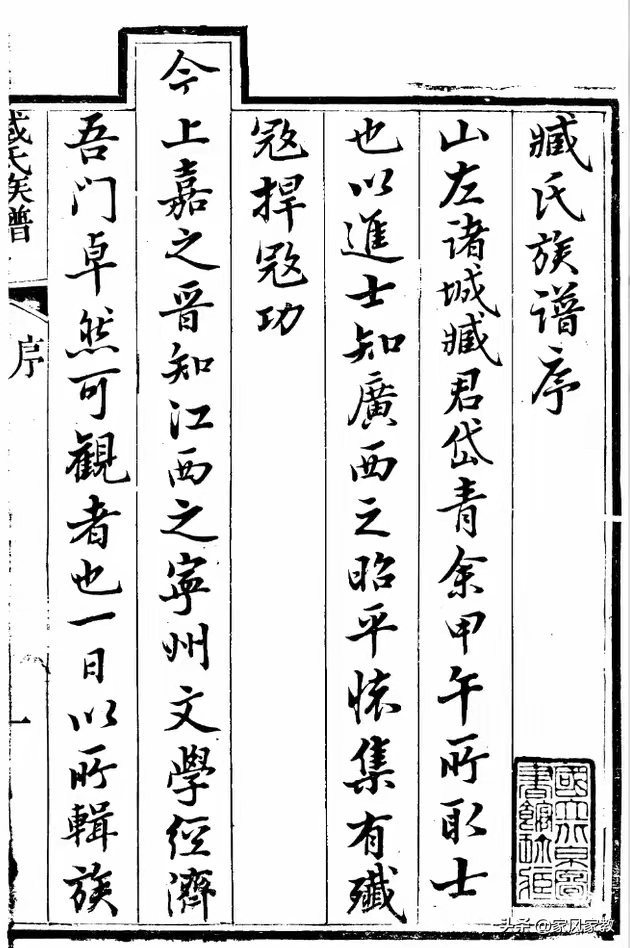 臧氏族谱序
山左诸城臧君岱青余甲午所取士
也以進士知廣西之昭平懷集有殲
寇捍寇功
今上嘉之晋知江西之寧州文學经濟
吾门卓然可觀者也一日以所輯族
臧氏族譜
序
一
國立北平圖書館珍藏
头条@家风家教